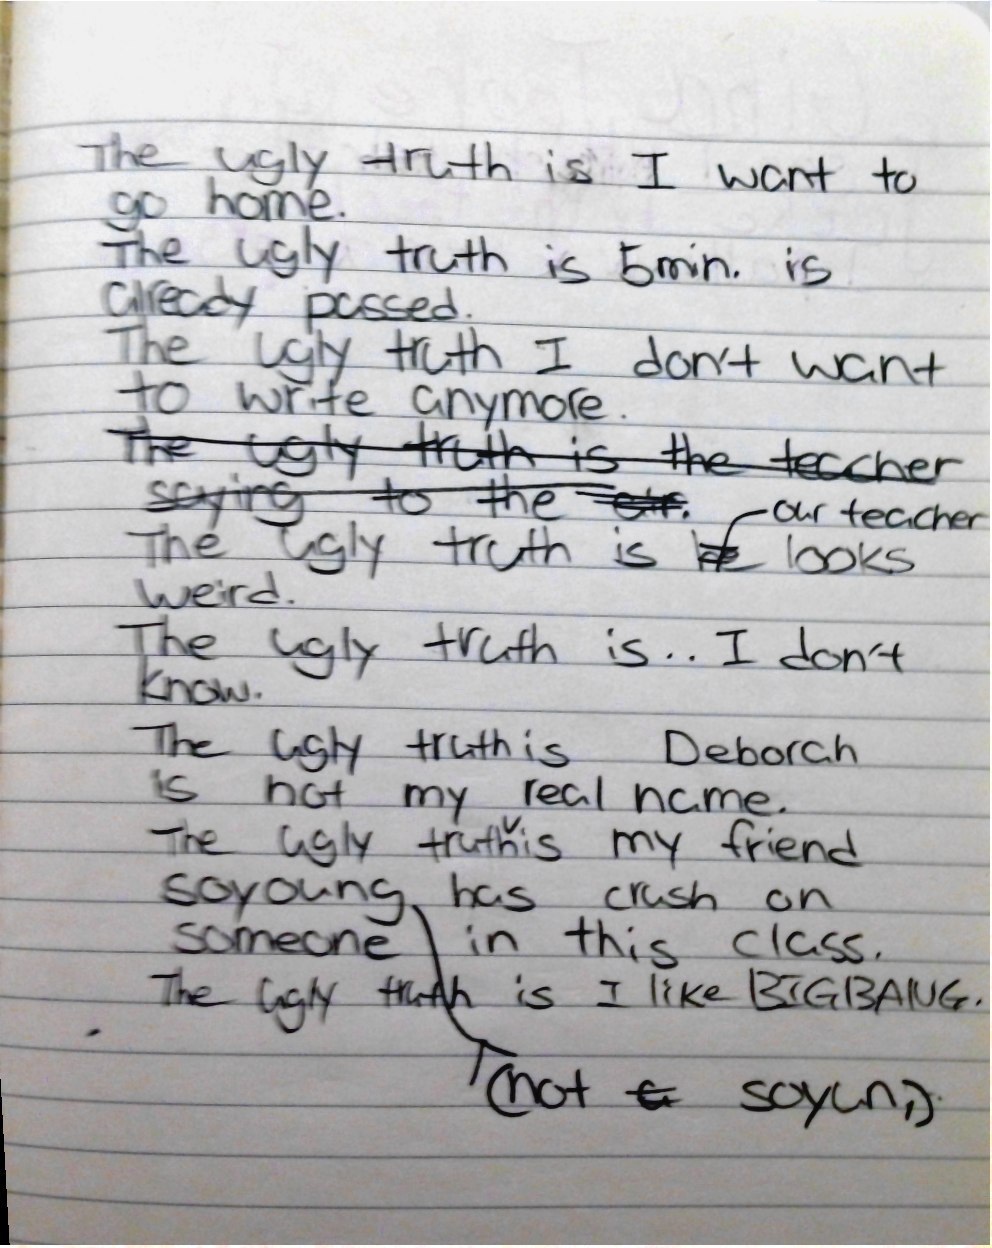 The ugly truth is I want to
go home.
The ugly truth is 5min. is
already passed.
The ugly truth I don't want
to write anymore.
The ugly truth is the teacher
saying to the
our teacher
The ugly truth is looks
weird.
The ugly truth is.. I don't
know.
The ugly truth is Deborah
is not my real name.
The ugly truth is my friend
soyoung has crush on
someone in this class.
The ugly truth is I like BIGBANG.
(not soyun)